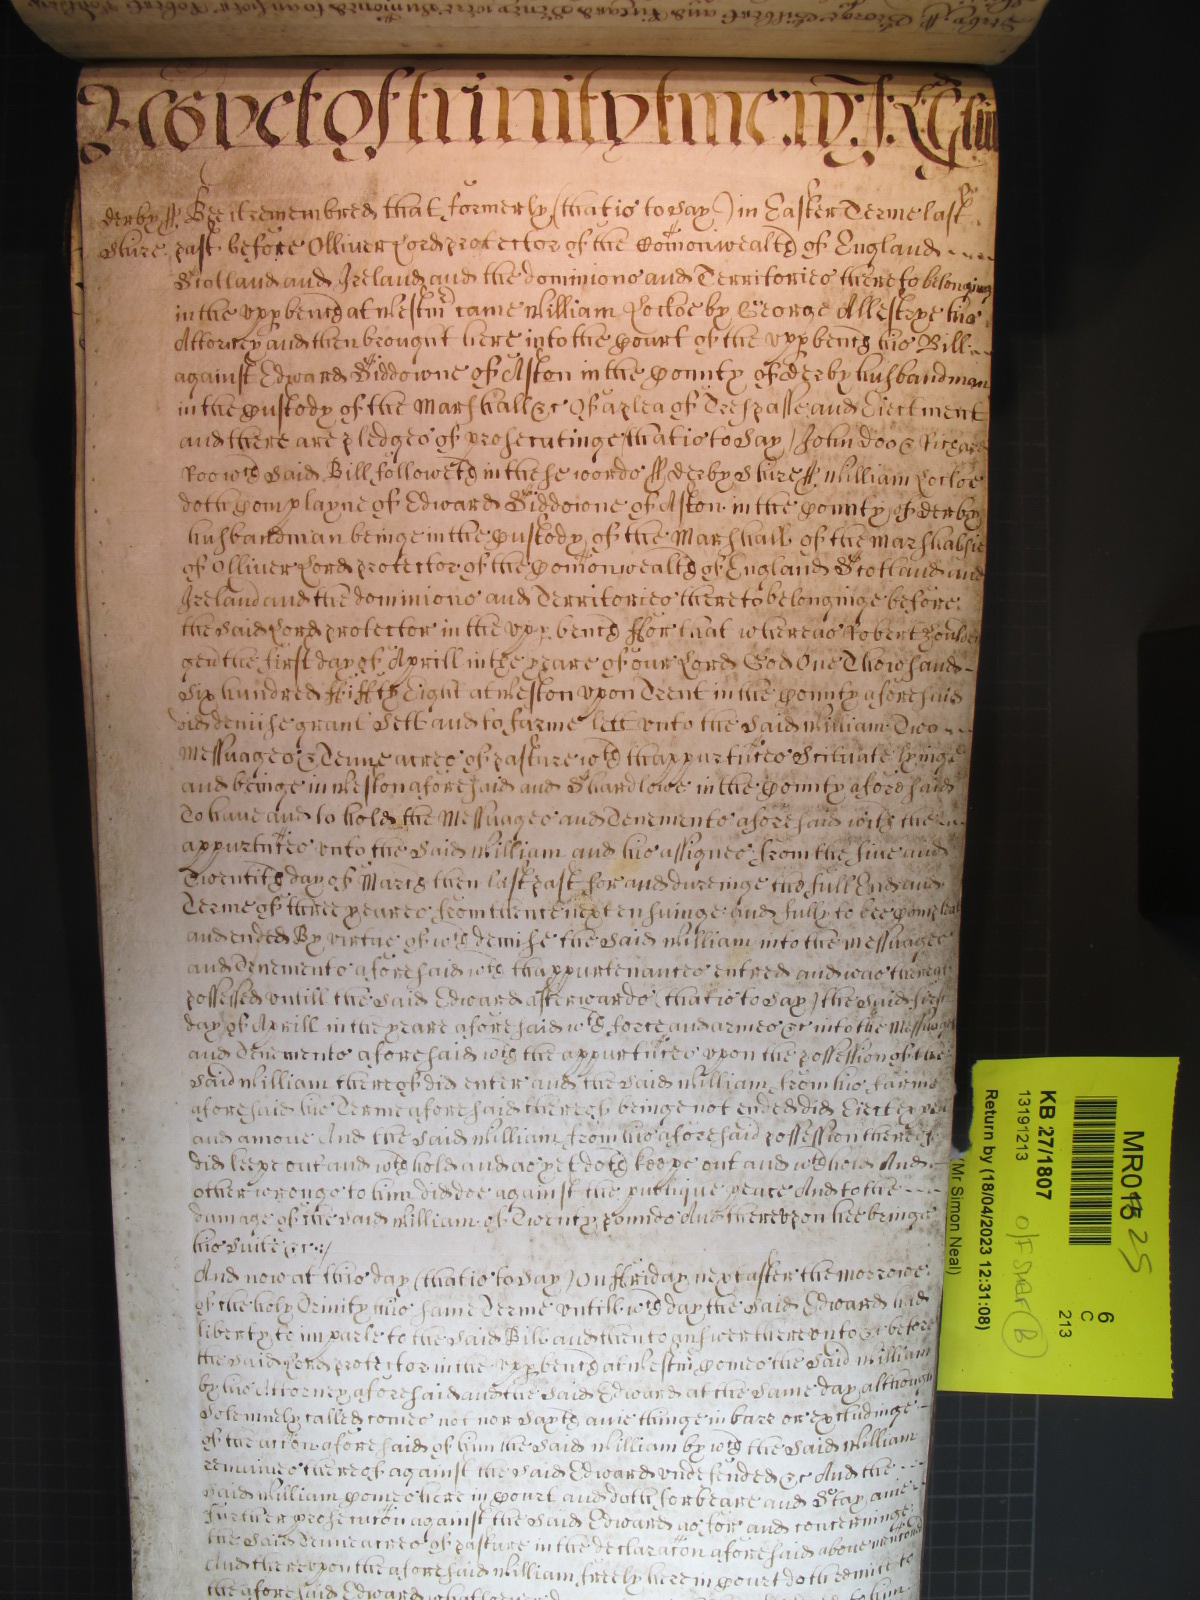 Yet of trinity terme
derby ss Bee it remembred that formerly (that is to Say) in Easter Terme last
Shire past before Olliver Lord protector of the Comonwealth of England
Scotland and Ireland and the dominions and Territories thereto belonging
in the Upp bench at Westm came William Lockoe by George Allestrye his
Attorney and then brought here into the Court of the Upp bench his Bill
against Edward Siddowne of Aston in the County of derby husbandman
in the Custody of the Marshall &c Of a plea of Trespasse and Ejectment
and there are pledges of prosecutinge (that is to Say) John doo & Richard
Roo wch said Bill followeth in these words ss derby Shire ss William Lockoe
doth Complayne of Edward Siddowne of Aston in the County of derby
husbandman beinge in the Custody of the Marshall of the Marshalsie
of Olliver Lord protector of the Comonwealth of England Scotland and
Ireland and the dominions and Territories thereto belonginge before
the Said Lord protector in the Upp bench ffor that whereas Robert
gent the first day of Aprill in the yeare of our Lord God One Thowsand
Six hundred ffiffty Eight at Weston upon Trent in the County aforesaid
did demise grant Sett and to farme lett unto the Said William Two
Messuages & Tenne acres of pasture wth thappurtnces Scituate lyinge
and beinge in Weston aforesaid and Shardlowe in the County aforesaid
To have and to hold the Messuages and Tenements aforesaid with the
appurtnces unto the Said William and his assignes from the five and
Twentith day of March then last past for and dureinge the full End and
Terme of three yeares from thence next ensuinge and fully to bee Compleat
and ended By virtue of wch demise the Said William into the Messuages
and Tenements aforesaid wth thappurtenances entred and was thereof
possessed untill the Said Edward afterwards (that is to Say) the Said first
day of Aprill in the yeare aforesaid wth force and armes &c into the Messuages
and Tenements aforesaid wth the appurtnces upon the possession of the
Said William thereof did enter and the Said William from his farme
aforesaid his Terme aforesaid thereof beinge not ended did Eject expell
and amove And the Said William from his aforesaid possession thereof
did keepe out and wthhold and as yet doth keepe out and wthhold And
other wrongs to him did doe against the publique peace And to the
damage of the Said William of Twenty pounds And thereupon hee bringe
his Suite &c
And now at this day (that is to Say) On ffriday next after the morrowe
of the holy Trinity this same Terme untill wch day the Said Edward had
liberty to imparle to the Said Bill and then to answer thereunto &c before
the Said Lord protector in the Upp bench at Westm Comes the Said William
by his Attorney aforesaid and the Said Edward at the Same day although
Solemnely called comes not nor Sayth anie thinge in barr or excludinge
of the accon aforesaid of him the Said William by wch the Said William
remaines thereof against the Said Edward undefended &c And the
Said William Comes here in Court and doth forbeare and Stay anie
further prosecucon against the Said Edward as for and concerninge
the Said Tenne acres of pasture in the declaracon aforesaid above mentoned
And thereupon the aforesaid William freely here in Court doth remitt to
the aforesaid Edward to him
MR015
6
C
213
KB 27/1807
13191213
Return by (18/04/2023 12:31:08)
(Mr Simon Neal)